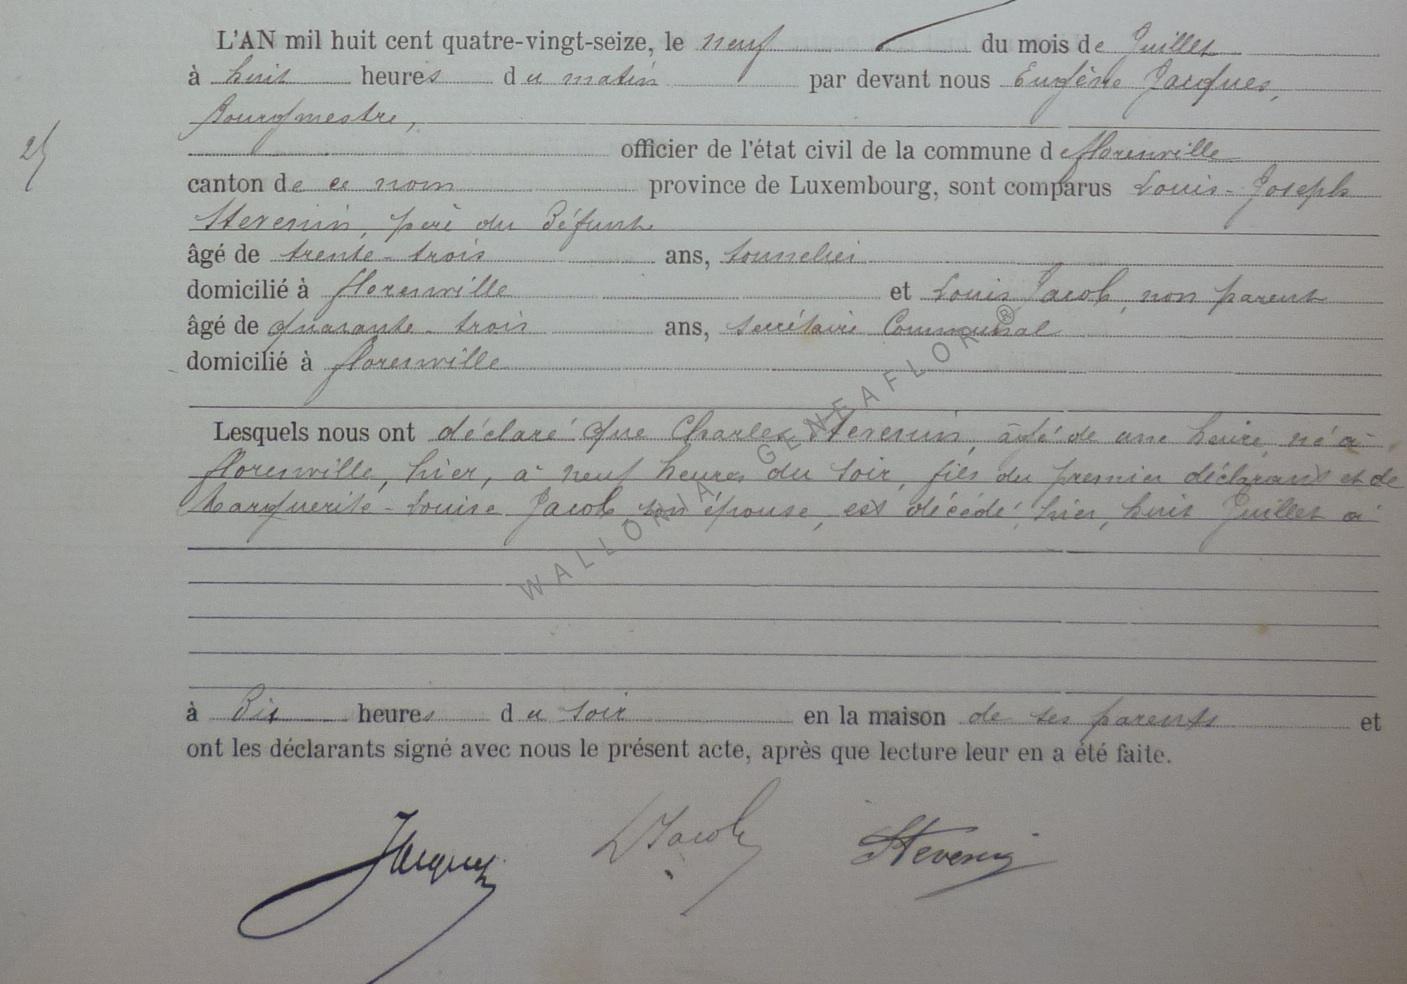 L'AN mil huit cent quatre-vingt-seize, le neuf du mois de Juillet
à huit heures du matin par devant nous Eugène Jacques,
Bourgmestre,
officier de l'état civil de la commune de florenville
canton de ce nom province de Luxembourg, sont comparus Louis-Joseph
Stevenin, père du défunt
âgé de trente-trois ans, tonnelier
domicilié à florenville et Louis Jacob, non parent
âgé de quarante-trois ans, secrétaire Communal
domicilié à florenville
Lesquels nous ont déclaré que Charles Stevenin, âgé de une heure, né à
florenville, hier, à neuf heures du soir, fils du premier déclarant et de
Marguerite-Louise Jacob son épouse, est décédé, hier, huit Juillet à
à dix heures du soir en la maison de ses parents et
ont les déclarants signé avec nous le présent acte, après que lecture leur en a été faite.
Jacques LJacob Stevenin
WALLONIA GENEAFLOR ®